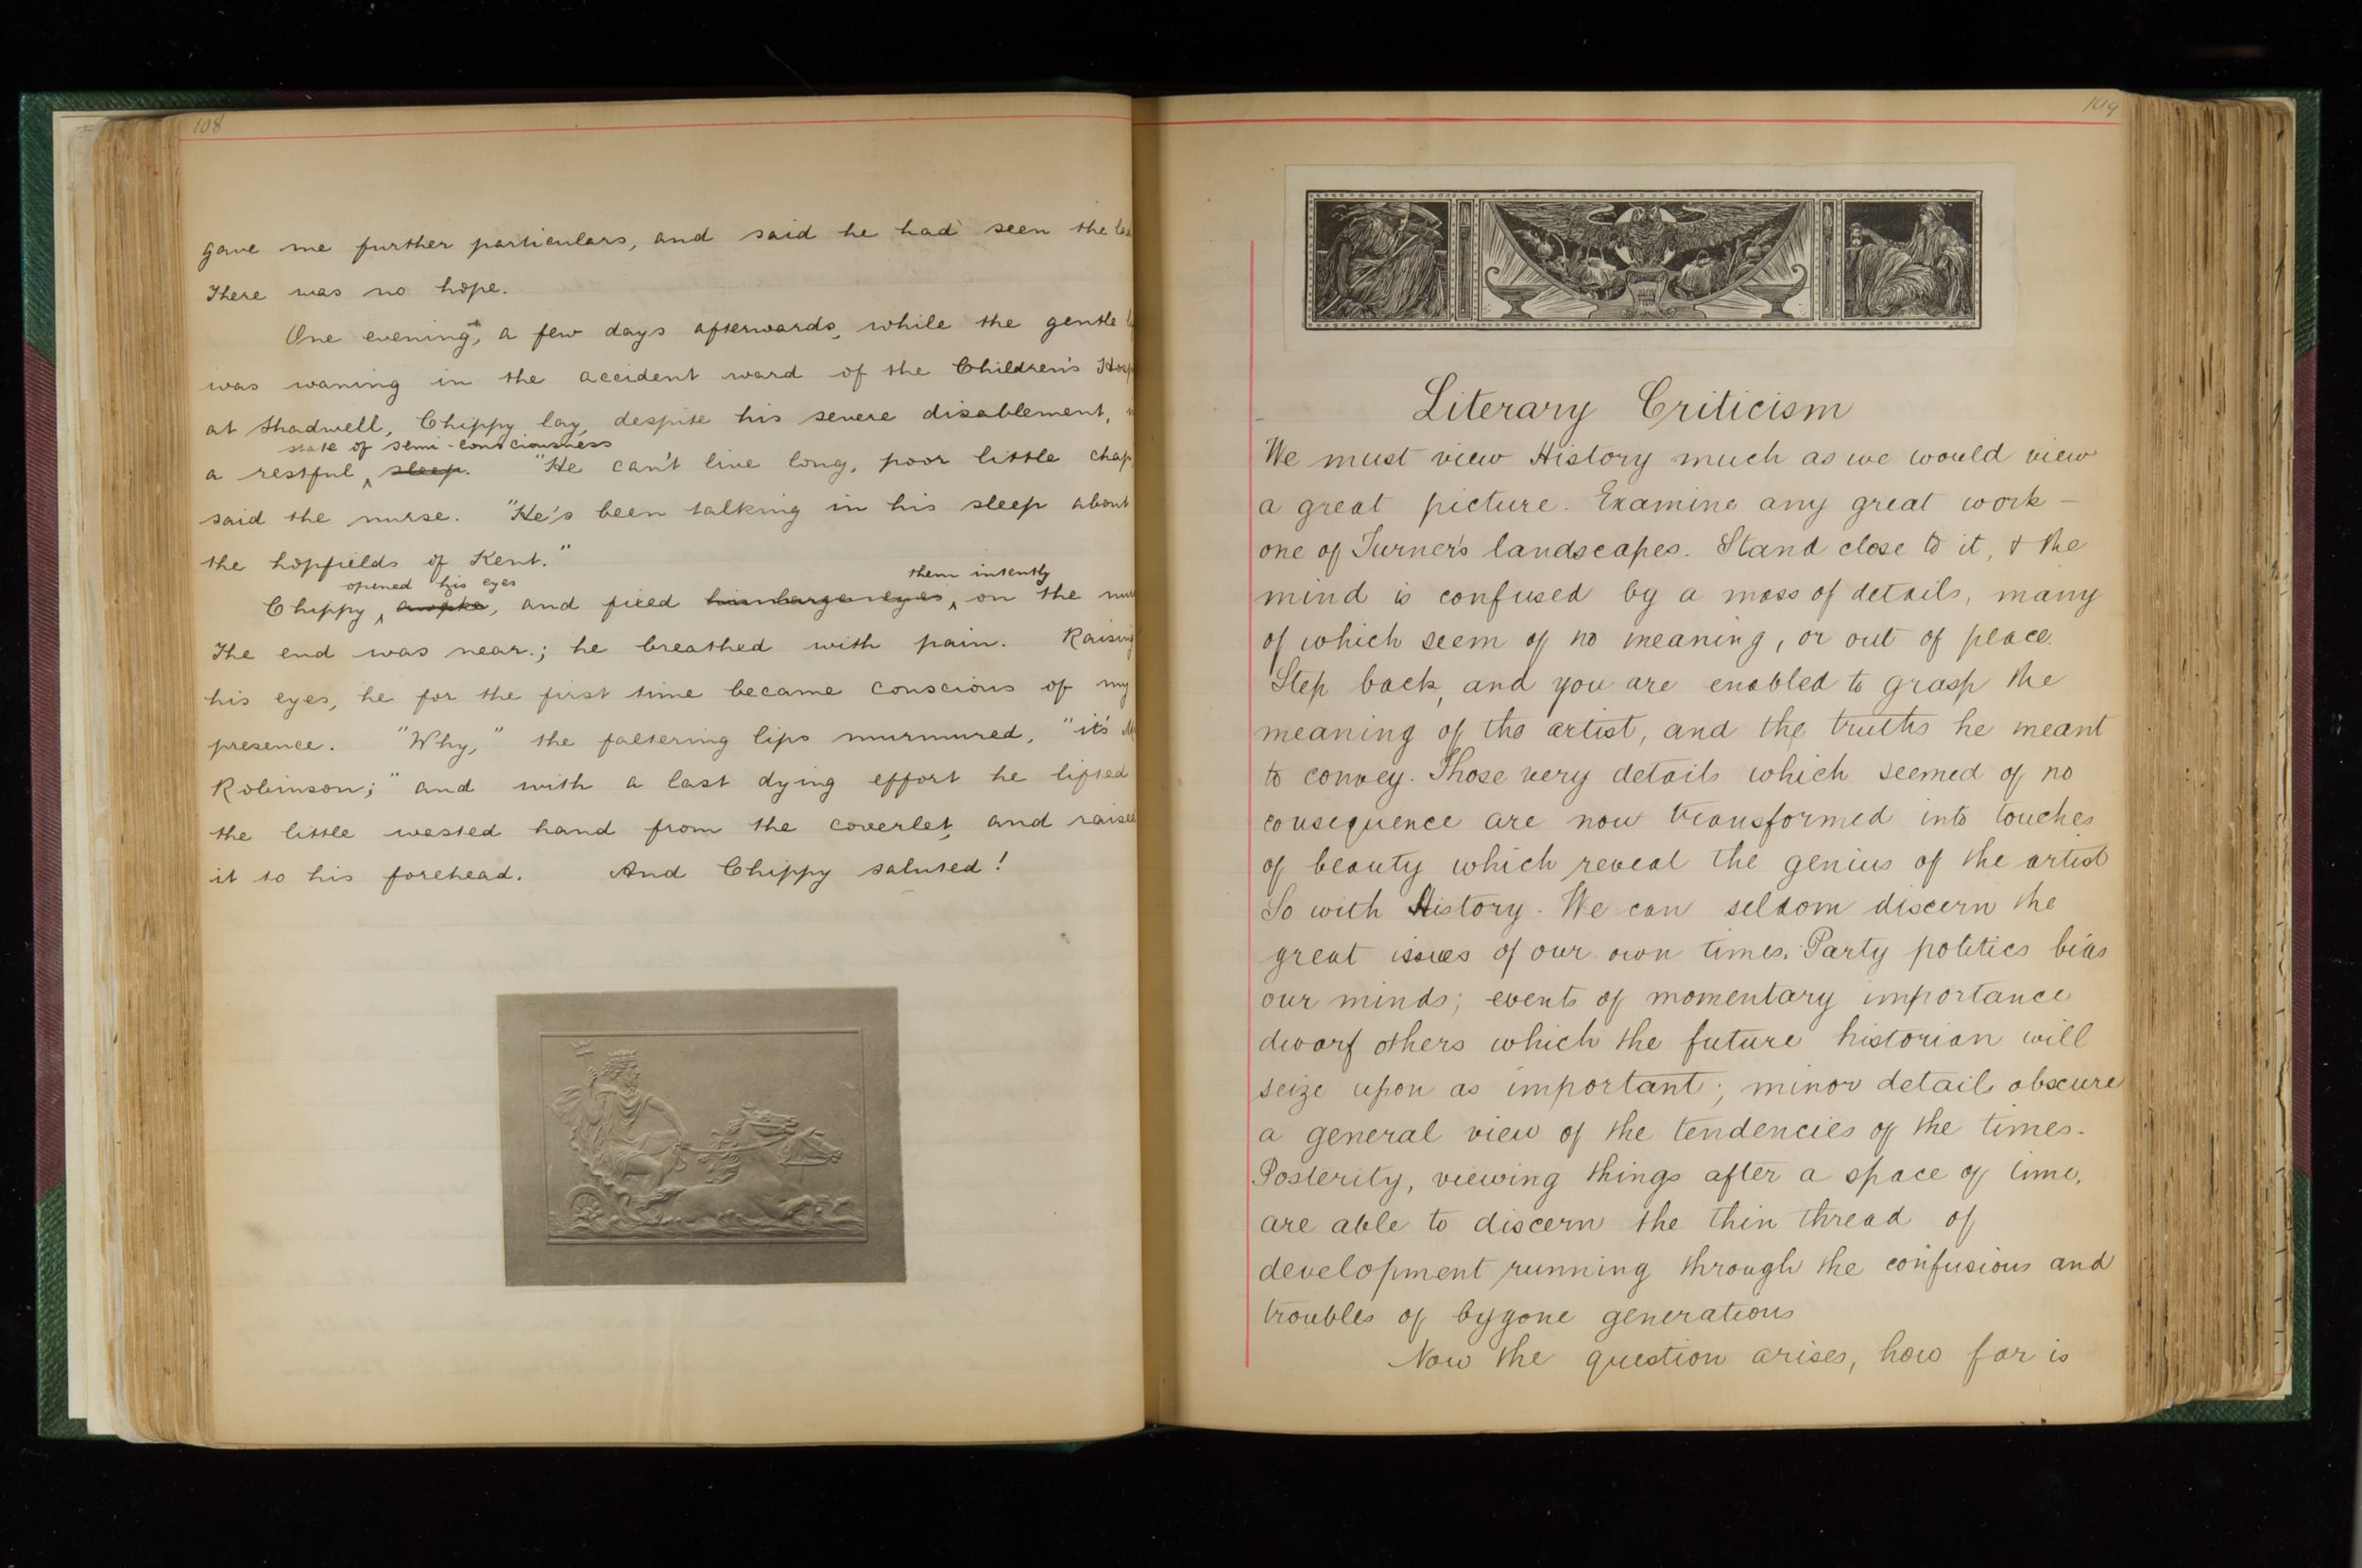 108
gave me further particulars, and said he had seen the
There was no hope.
One evening, a few days afterwards, while the gentle
was waning in the accident ward of the Children's
at Shadwell, Chippy lay, despite his severe disablement,
state of semi-consciousness
a restful ‸ sleep. "He can't live long, poor little chap
said the nurse. "He's been talking in his sleep about
the hopfields of Kent."
opened his eyes them intently
Chippy ‸ awoke, and fixed his large eyes ‸ on the
The end was near; he breathed with pain. Raising
his eyes, he for the first time became conscious of my
presence. "Why," the faltering lips murmured, "it's
Robinson;" and with a last dying effort he lifted
the little wasted hand from the coverlet, and raised
it to his forehead. And Chippy saluted!
109
Literary Criticism
We must view History much as we would view
a great picture. Examine any great work –
one of Turner's landscapes. Stand close to it, & the
mind is confused by a mass of details, many
of which seem of no meaning, or out of place.
Step back, and you are enabled to grasp the
meaning of the artist, and the truths he meant
to convey. Those very details which seemed of no
consequence are now transformed into touches
of beauty which reveal the genius of the artist
So with History. We can seldom discern the
great issues of our own times. Party politics bias
our minds; events of momentary importance
dwarf others which the future historian will
seize upon as important; minor details obscure
a general view of the tendencies of the times.
Posterity, viewing things after a space of time,
are able to discern the thin thread of
development running through the confusions and
troubles of bygone generations
Now the question arises, how far is